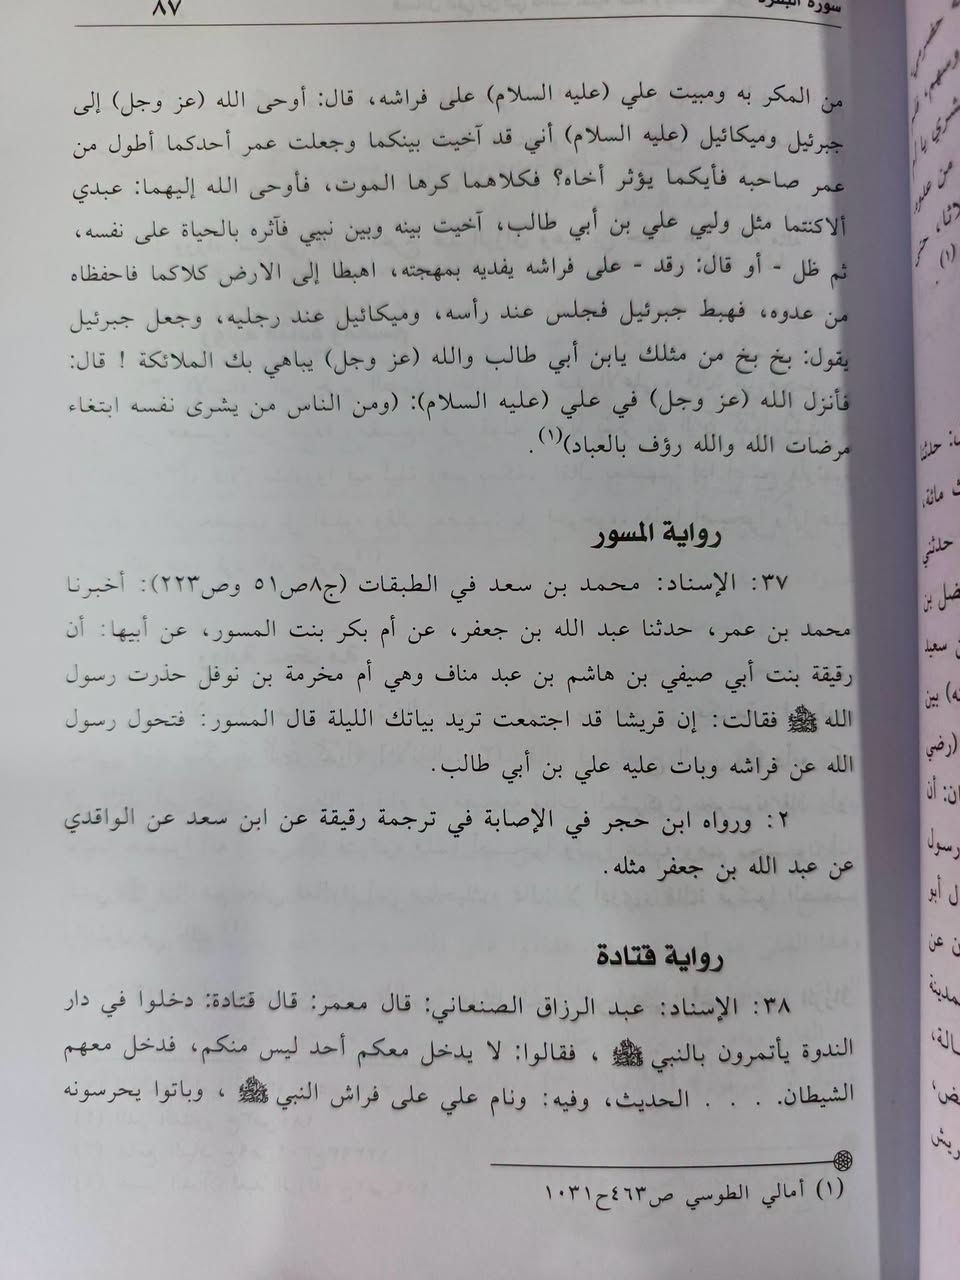 سورة البقرة
٨٧
من المكر به ومبيت علي (عليه السلام) على فراشه، قال: أوحى الله (عز وجل) إلى
جبرئيل وميكائيل (عليه السلام) أني قد آخيت بينكما وجعلت عمر أحدكما أطول من
عمر صاحبه فأيكما يؤثر أخاه؟ فكلاهما كرها الموت، فأوحى الله إليهما: عبدي
ألاكنتما مثل وليي علي بن أبي طالب، آخيت بينه وبين نبيي فآثره بالحياة على نفسه،
ثم ظل - أو قال: رقد - على فراشه يفديه بمهجته، اهبطا إلى الارض كلاكما فاحفظاه
من عدوه، فهبط جبرئيل فجلس عند رأسه، وميكائيل عند رجليه، وجعل جبرئيل
يقول: بخ بخ من مثلك يابن أبي طالب والله (عز وجل) يباهي بك الملائكة ! قال:
فأنزل الله (عز وجل) في علي (عليه السلام): (ومن الناس من يشرى نفسه ابتغاء
مرضات الله والله رؤف بالعباد)(١).
رواية المسور
٣٧: الإسناد: محمد بن سعد في الطبقات (ج٨ص٥١ وص٢٢٣): أخبرنا
محمد بن عمر، حدثنا عبد الله بن جعفر، عن أم بكر بنت المسور، عن أبيها: أن
رقيقة بنت أبي صيفي بن هاشم بن عبد مناف وهي أم مخرمة بن نوفل حذرت رسول
الله ﷺ فقالت: إن قريشا قد اجتمعت تريد بياتك الليلة قال المسور: فتحول رسول
الله عن فراشه وبات عليه علي بن أبي طالب.
٢: ورواه ابن حجر في الإصابة في ترجمة رقيقة عن ابن سعد عن الواقدي
عن عبد الله بن جعفر مثله.
رواية قتادة
٣٨: الإسناد: عبد الرزاق الصنعاني: قال معمر: قال قتادة: دخلوا في دار
الندوة يأتمرون بالنبي ﷺ ، فقالوا: لا يدخل معكم أحد ليس منكم، فدخل معهم
الشيطان. . . . الحديث، وفيه: ونام علي على فراش النبي ﷺ ، وباتوا يحرسونه
(١) أمالي الطوسي ص٤٦٣ح١٠٣١